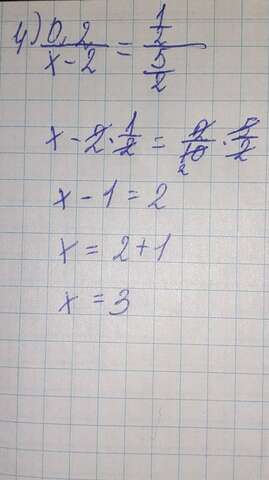 4) 0,2/(x-2) = (1/2)/(5/2)
x - 2 · 1/2 = 2/10 · 5/2
2
x - 1 = 2
x = 2 + 1
x = 3